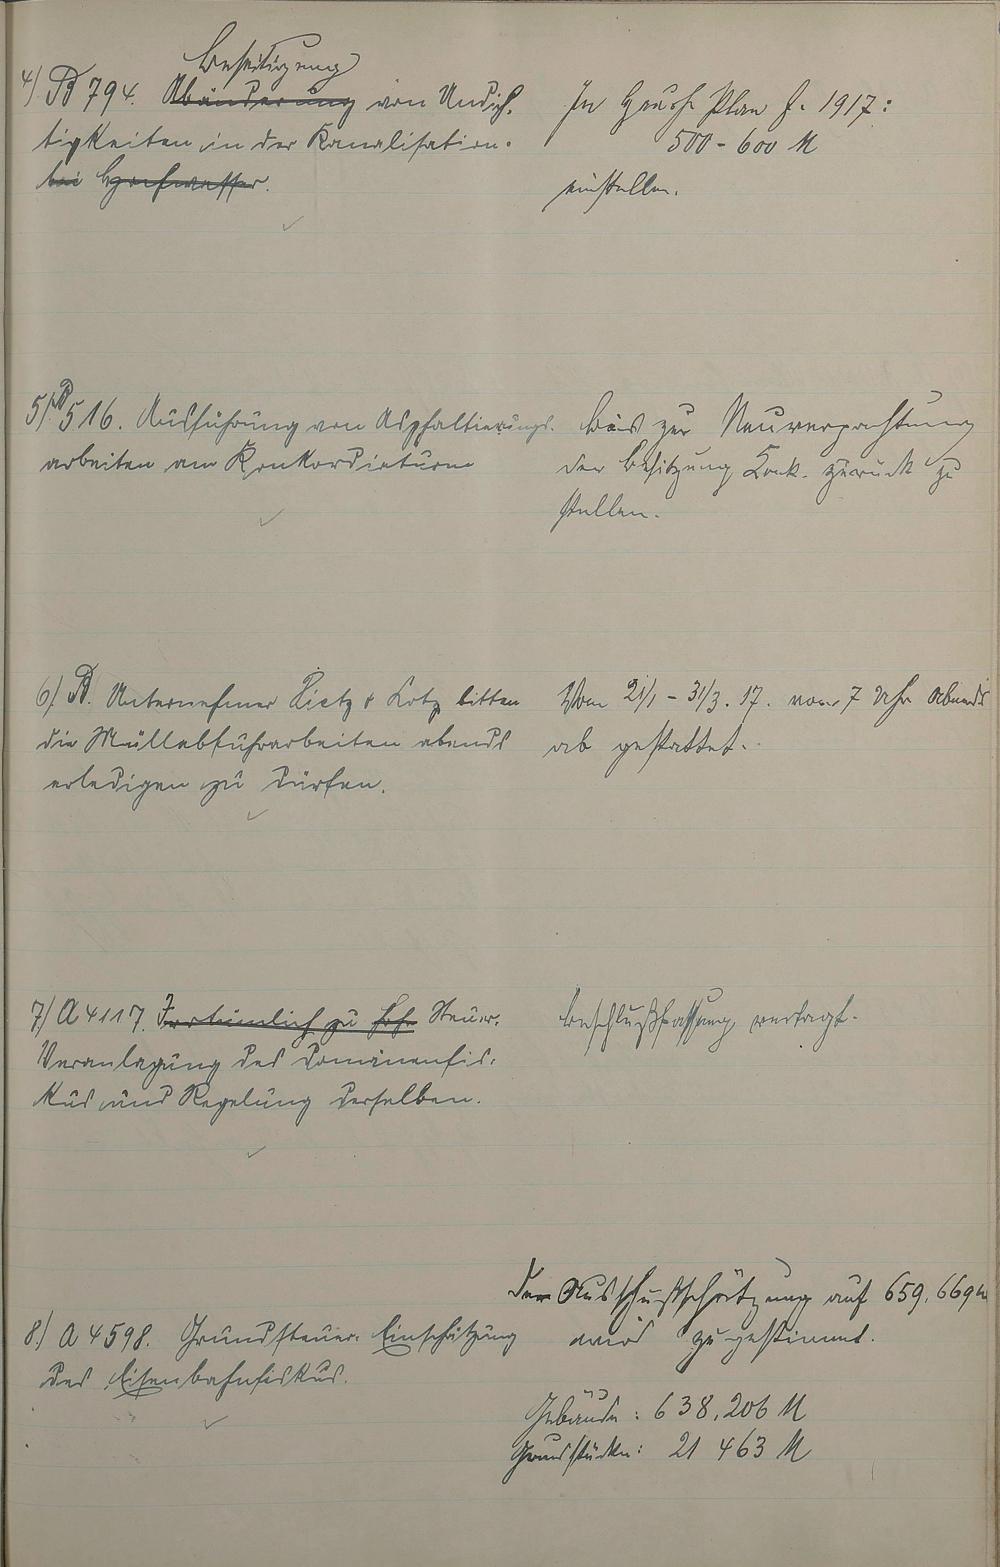 Beseitigung
4) B 794. Abänderung von Undich-
tigkeiten in der Kanalisation.
bei Hochwasser.
In Haush. Plan f. 1917:
500 - 600 M
einstellen.
5) B 516. Ausführung von Asphaltierungs-
arbeiten am Konkordiaturm
Bis zur Neuverpachtung
der Besitzung Konk. zurück zu
stellen.
6) B. Unternehmer Dietz & Lotz bitten
die Müllabfuhrarbeiten abends
erledigen zu dürfen.
Vom 21/1 - 31/3. 17. von 7 Uhr Abends
ab gestattet.
7) A 4117. Irrtümlich zu Steuer-
Veranlagung des Domänenfis-
kus und Regelung derselben.
Beschlußfassung vertagt.
8.) A 4598. Grundsteuer-Einschätzung
des Eisenbahnfiskus.
Der Ausschußschätzung auf 659,669 M
wird zugestimmt.
Gebäude: 638,206 M
Grundstücke: 21 463 M